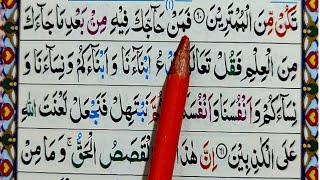 تَكُنْ مِّنَ الْمُمْتَرِيْنَ ﴿٦٠﴾ فَمَنْ حَآجَّكَ فِيْهِ مِنْۢ بَعْدِ مَا جَآءَكَ
مِنَ الْعِلْمِ فَقُلْ تَعَالَوْا نَدْعُ اَبْنَآءَنَا وَ اَبْنَآءَكُمْ وَ نِسَآءَنَا وَ
نِسَآءَكُمْ وَ اَنْفُسَنَا وَ اَنْفُسَكُمْ نَبْتَهِلْ فَنَجْعَلْ لَّعْنَتَ اللّٰهِ
عَلَى الْكٰذِبِيْنَ ﴿٦١﴾ اِنَّ هٰذَا الْقَصَصُ الْحَقُّ ۚ وَ مَا مِنْ